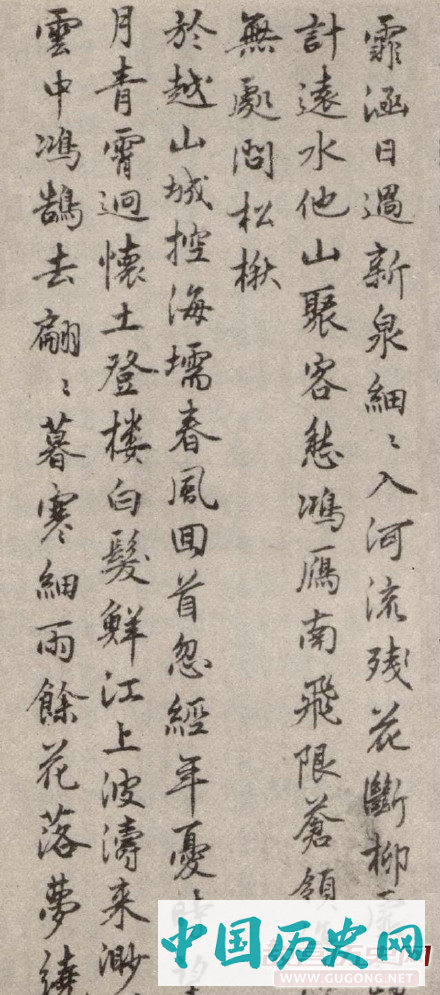 霏涵日過新泉細〻入河流残花斷柳
計遠水他山聚客愁鴻鴈南飛限蒼領
無處問松楸
於越山城控海壖春風回首忽經年憂時
月青霄迥懷土登楼白髮鮮江上波濤来渺
雲中鴻鵠去翩〻暮寒細雨餘花落夢繞
中国历史网
WWW.GUGONG.NET